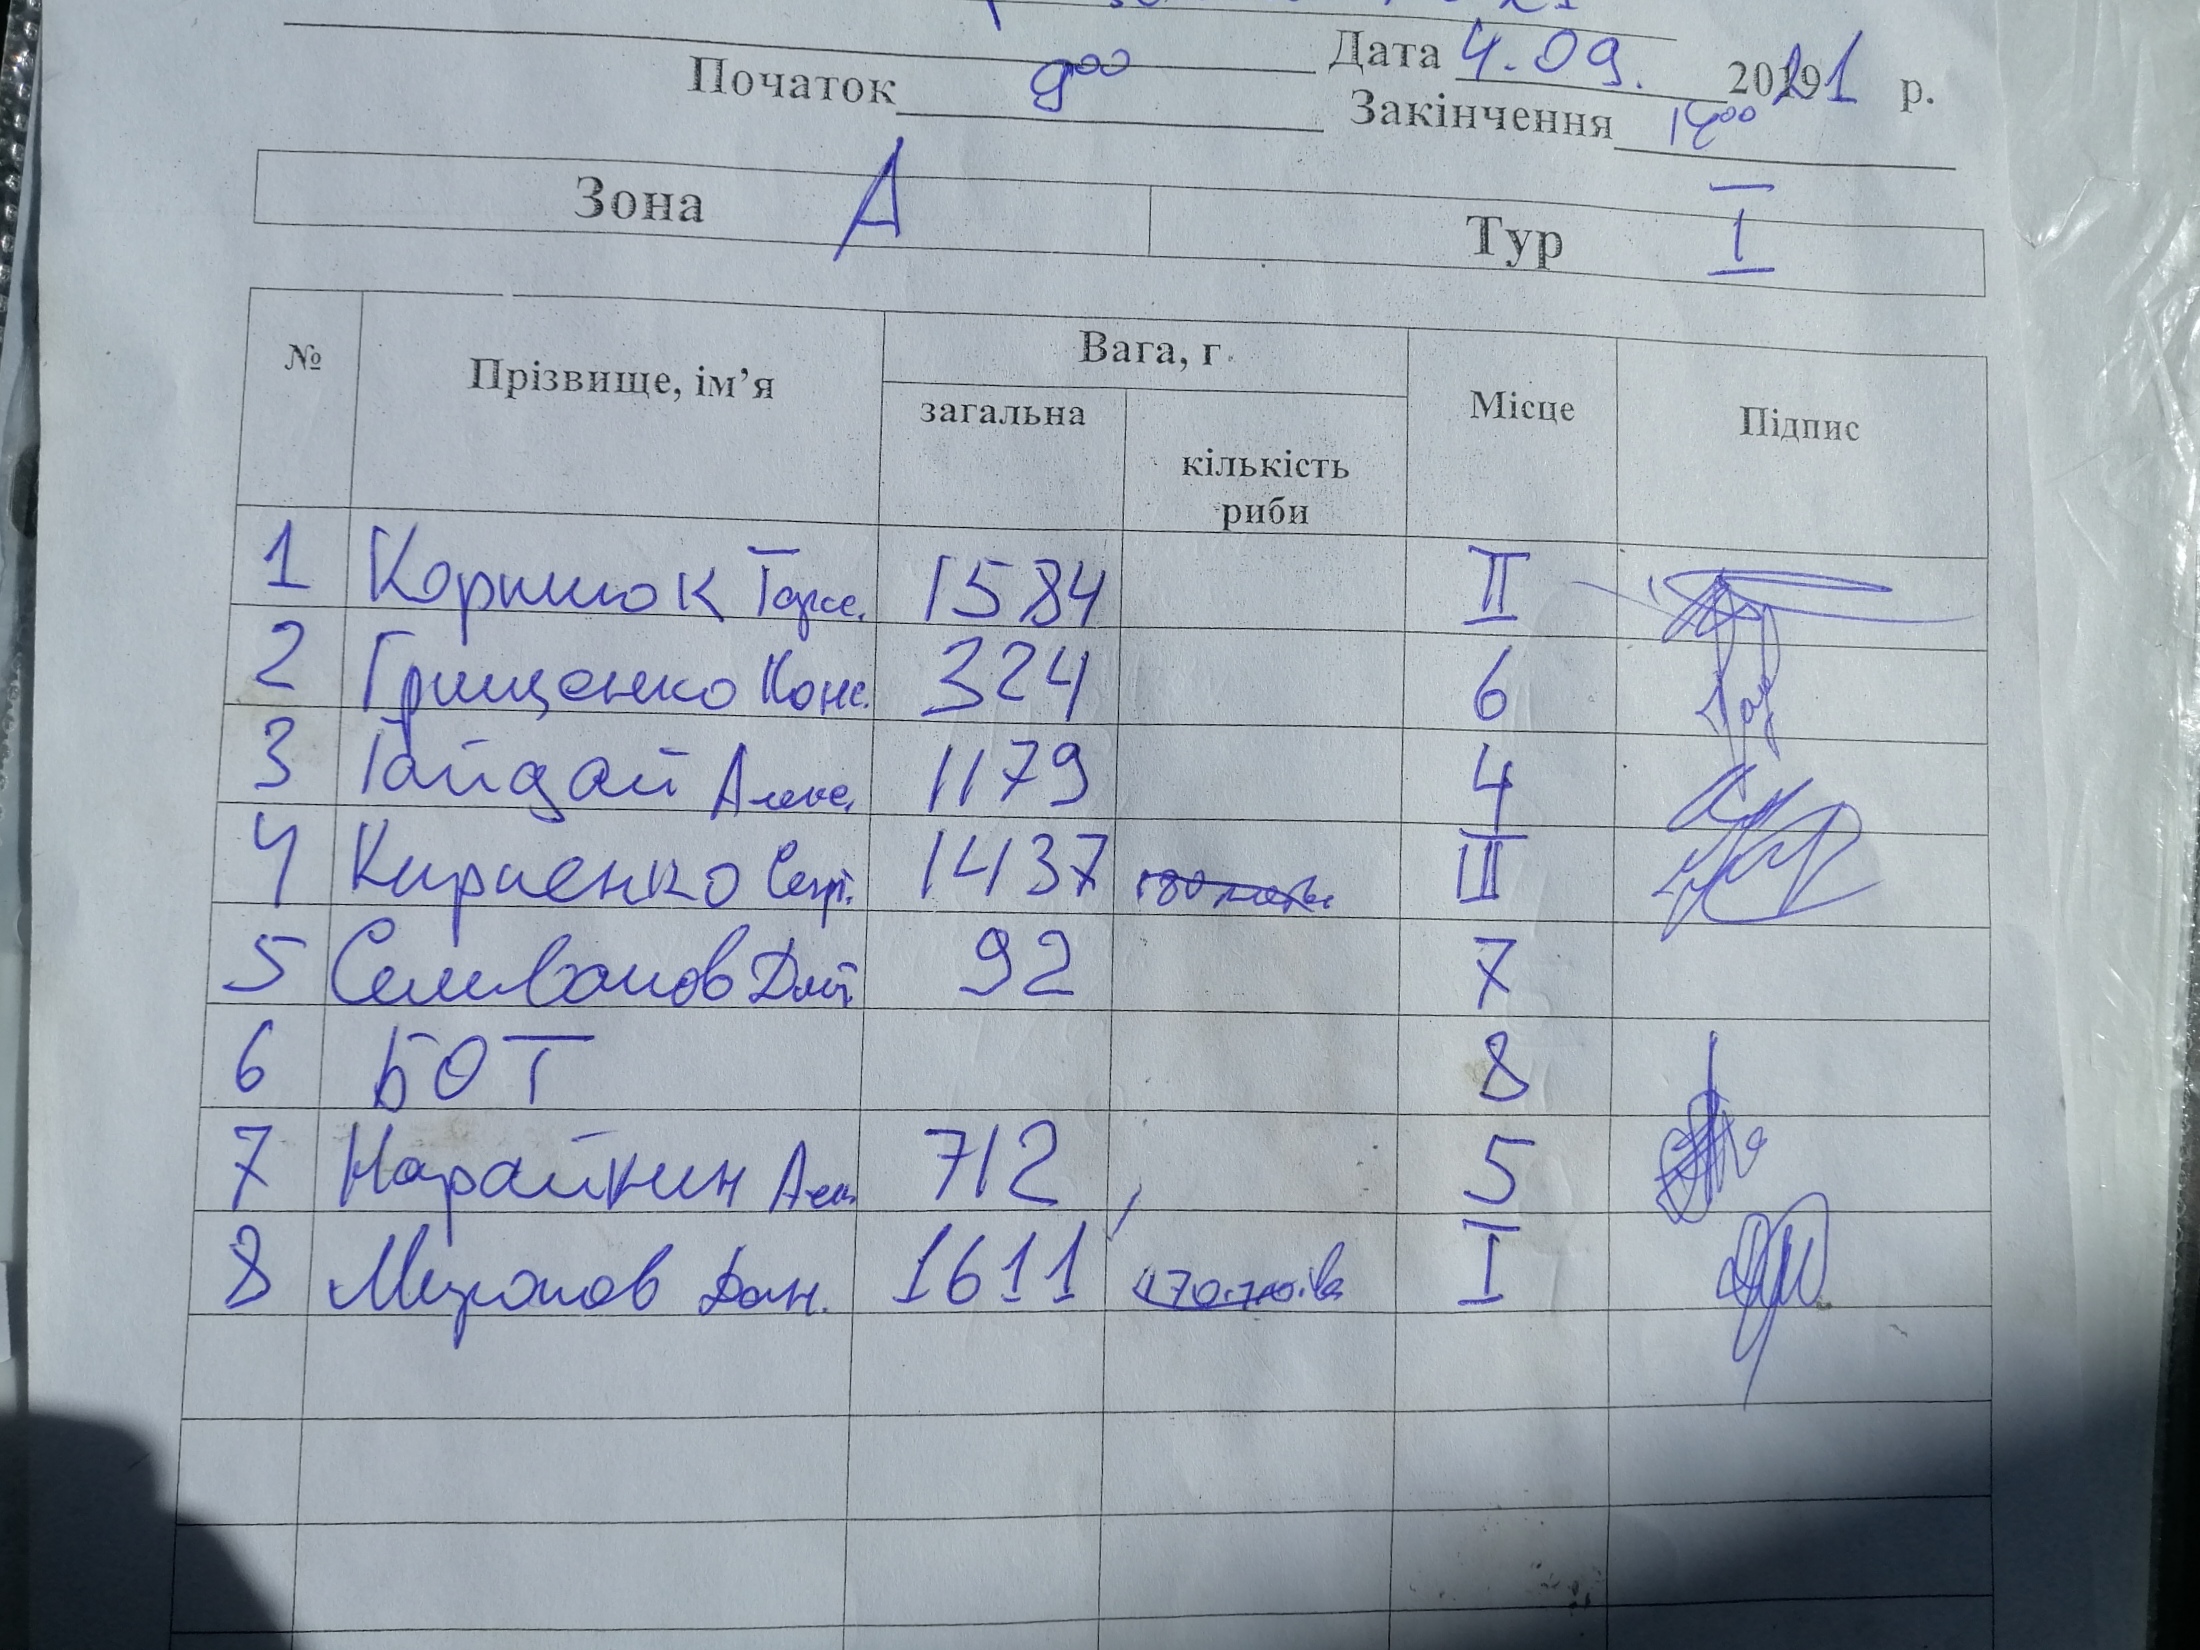 Дата 4.09. 2021 р.
Початок 9⁰⁰ Закінчення 14⁰⁰
Зона А Тур I
№ Прізвище, ім’я Вага, г Місце Підпис
загальна кількість риби
1 Коршок 1584 II
2 Грищенко Конс. 324 6
3 Гайдай Алекс. 1179 4
4 Кириенко Серг. 1437 III
5 Селиванов Дмит. 92 7
6 БОТ 8
7 Нарайкин Алек. 712 5
8 Миронов Дан. 1611 I